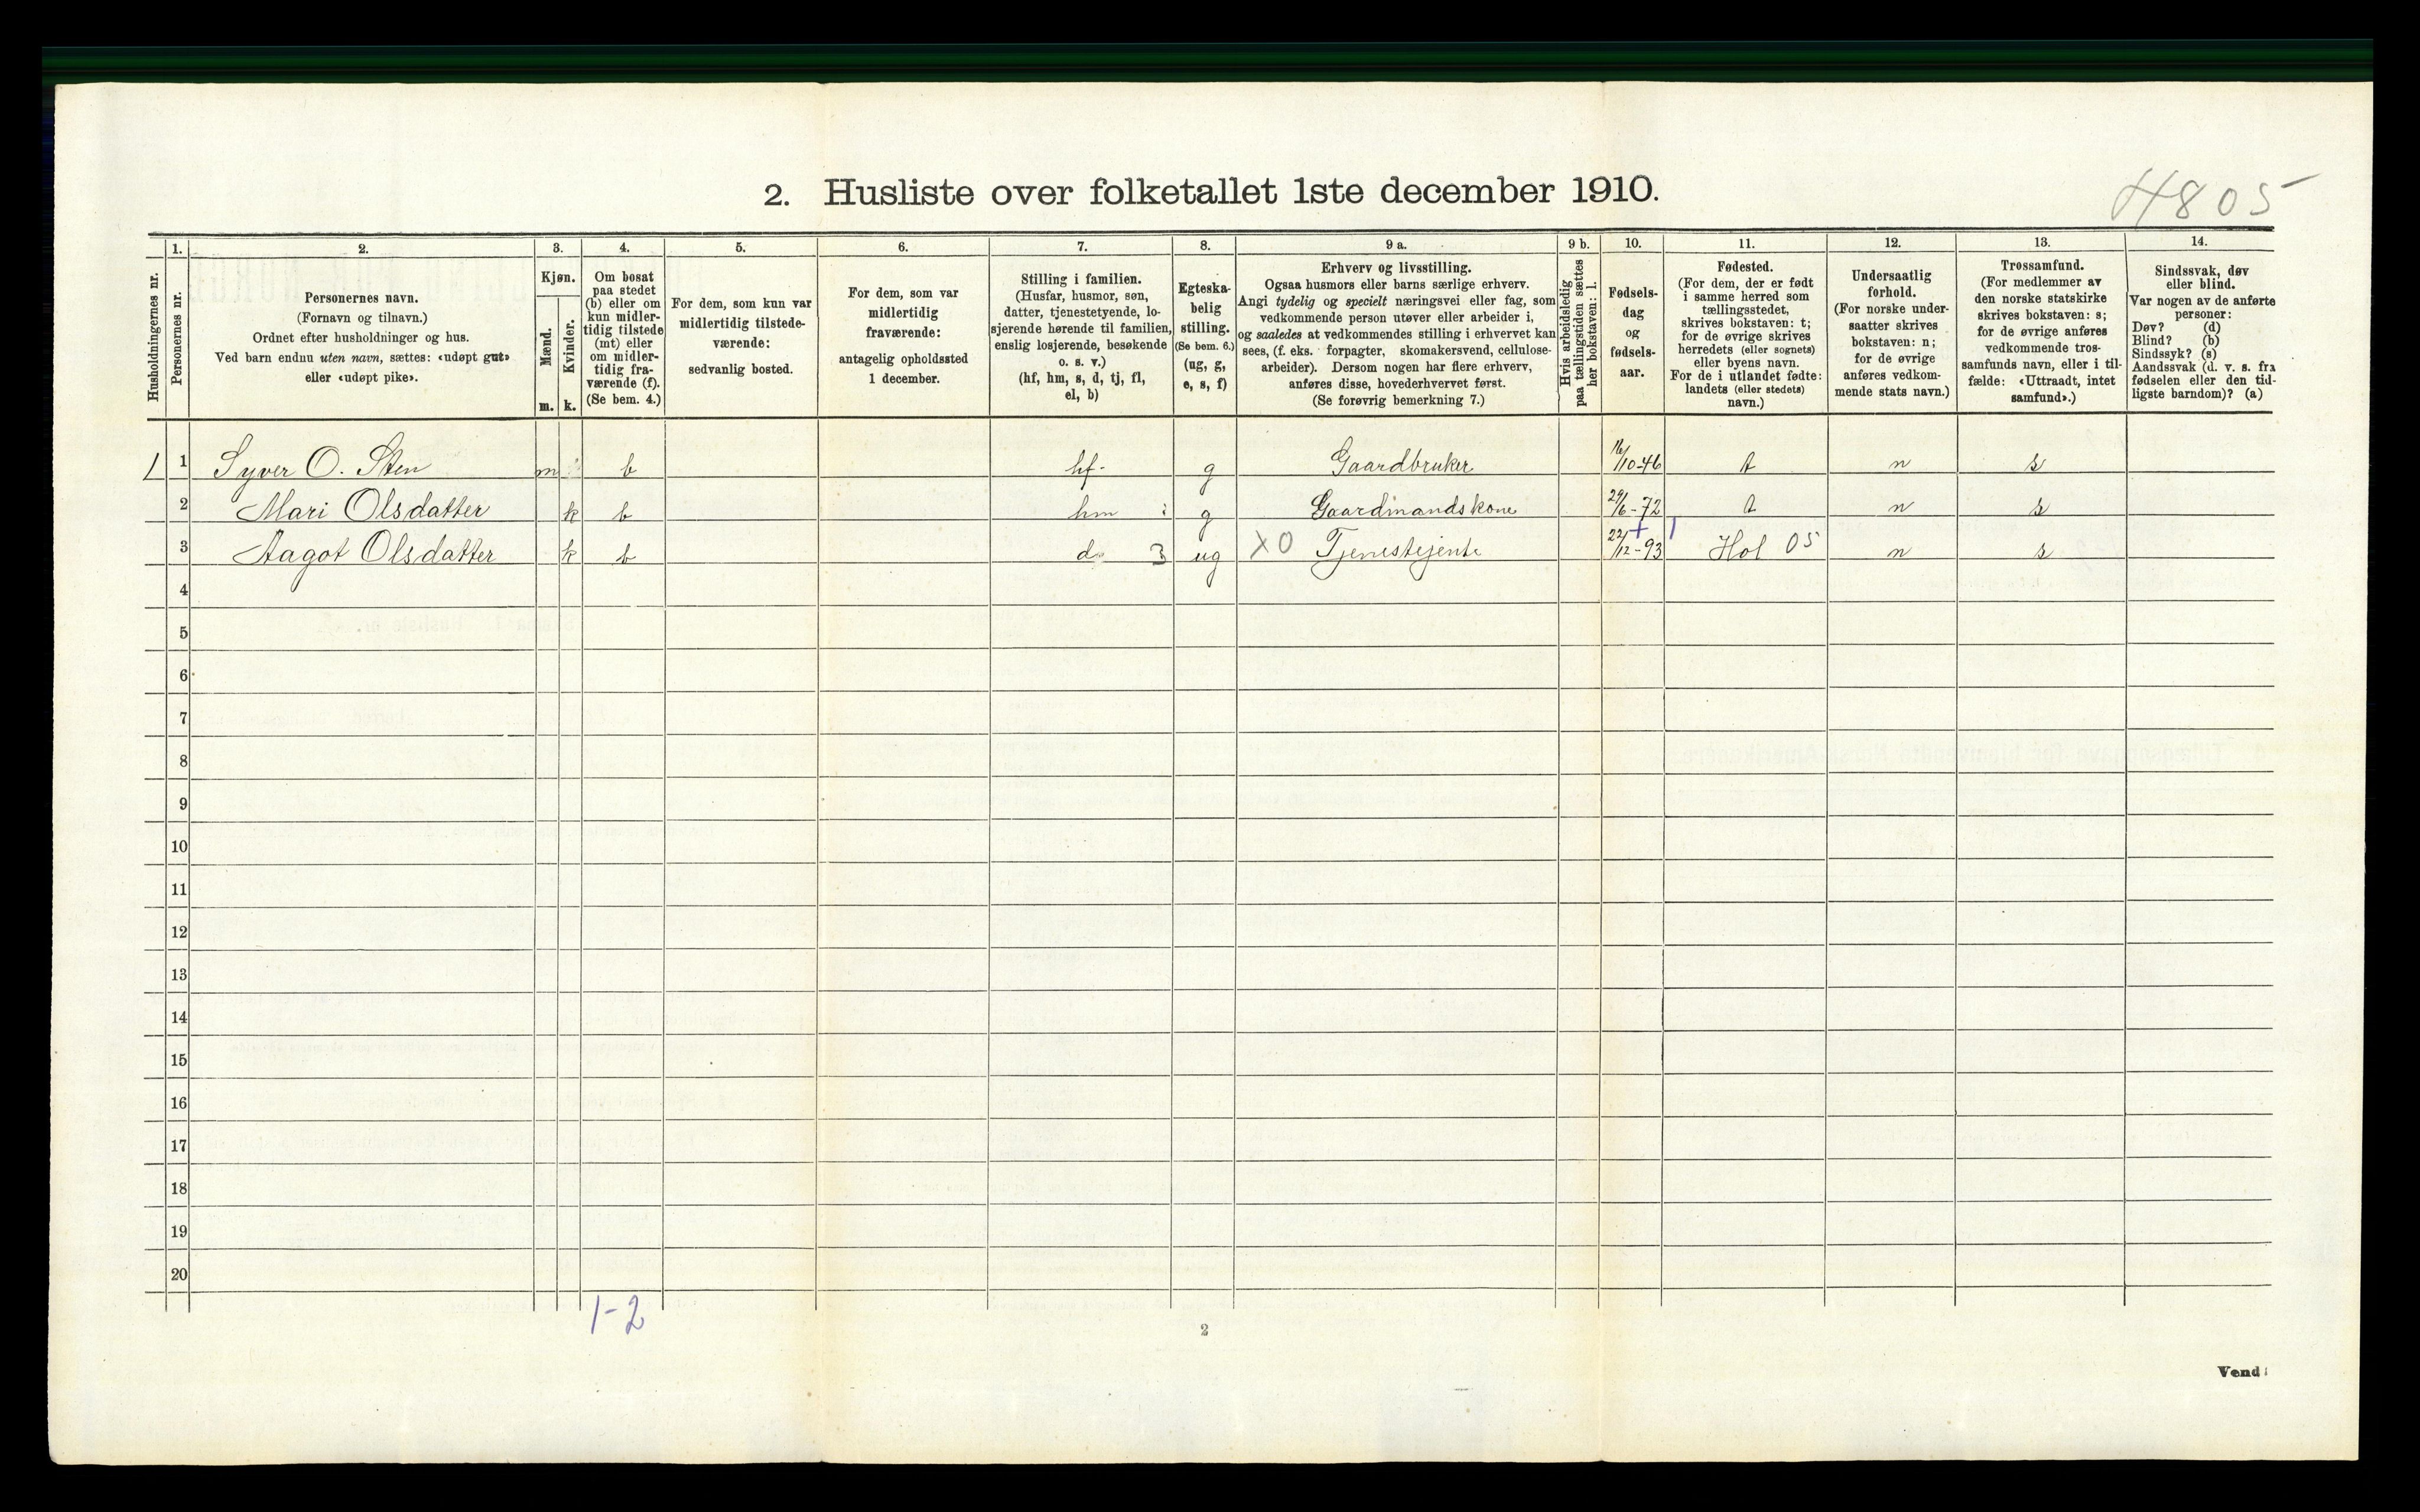 2. Husliste over folketallet 1ste december 1910.
4805
Husholdningernes nr.
1.
Personernes nr.
2.
Personernes navn.
(Fornavn og tilnavn.)
Ordnet efter husholdninger og hus.
Ved barn endnu uten navn, sættes: «udøpt gut»
eller «udøpt pike».
3.
Kjøn.
Mænd.
m.
Kvinder.
k.
4.
Om bosat
paa stedet
(b) eller om
kun midler-
tidig tilstede
(mt) eller
om midler-
tidig fra-
værende (f).
(Se bem. 4.)
5.
For dem, som kun var
midlertidig tilstede-
værende:
sedvanlig bosted.
6.
For dem, som var
midlertidig
fraværende:
antagelig opholdssted
1 december.
7.
Stilling i familien.
(Husfar, husmor, søn,
datter, tjenestetyende, lo-
sjerende hørende til familien,
enslig losjerende, besøkende
o. s. v.)
(hf, hm, s, d, tj, fl,
el, b)
8.
Egteska-
belig
stilling.
(Se bem. 6.)
(ug, g,
e, s, f)
9 a.
Erhverv og livsstilling.
Ogsaa husmors eller barns særlige erhverv.
Angi tydelig og specielt næringsvei eller fag, som
vedkommende person utøver eller arbeider i,
og saaledes at vedkommendes stilling i erhvervet kan
sees, (f. eks. forpagter, skomakersvend, cellulose-
arbeider). Dersom nogen har flere erhverv,
anføres disse, hovederhvervet først.
(Se forøvrig bemerkning 7.)
9 b.
Hvis arbeidsledig
paa tællingstiden sættes
her bokstaven: l.
10.
Fødsels-
dag
og
fødsels-
aar.
11.
Fødested.
(For dem, der er født
i samme herred som
tællingsstedet,
skrives bokstaven: t;
for de øvrige skrives
herredets (eller sognets)
eller byens navn.
For de i utlandet fødte:
landets (eller stedets)
navn.)
12.
Undersaatlig
forhold.
(For norske under-
saatter skrives
bokstaven: n;
for de øvrige
anføres vedkom-
mende stats navn.)
13.
Trossamfund.
(For medlemmer av
den norske statskirke
skrives bokstaven: s;
for de øvrige anføres
vedkommende tros-
samfunds navn, eller i til-
fælde: «Uttraadt, intet
samfund».)
14.
Sindssvak, døv
eller blind.
Var nogen av de anførte
personer:
Døv? (d)
Blind? (b)
Sindssyk? (s)
Aandssvak (d. v. s. fra
fødselen eller den tid-
ligste barndom)? (a)
1 1 Syver O. Sten m b hf. g Gaardbruker 16/10-46 t n s
2 Mari Olsdatter k b hm g Gaardmandskone 29/6-72 t n s
3 Aagot Olsdatter k b d 3 ug XO Tjenestejente 22/12-93 Hol 05 n s
4
5
6
7
8
9
10
11
12
13
14
15
16
17
18
19
20
1-2
2
Vend!